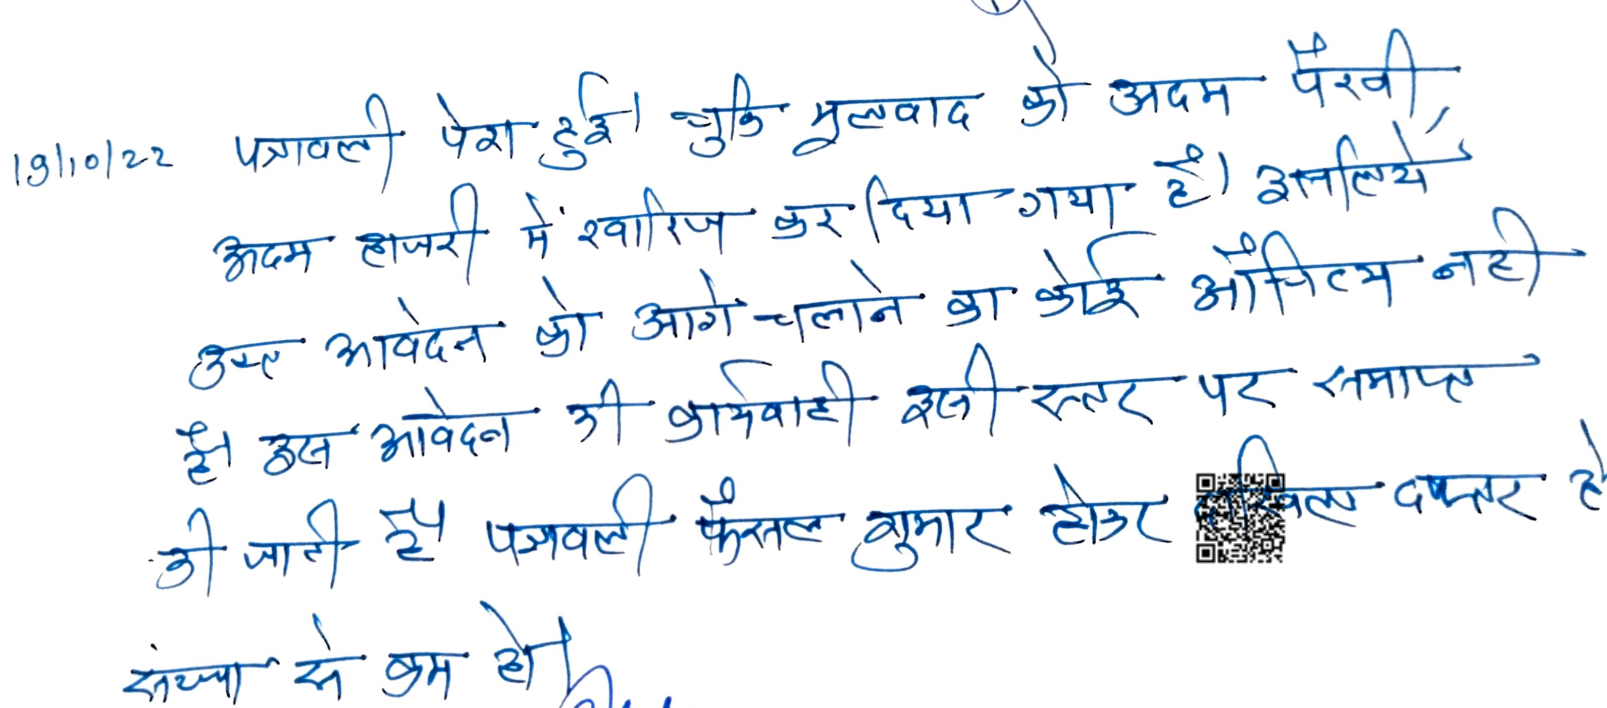 19/10/22 पत्रावली पेश हुई। चुकि मूलवाद को अदम पैरवी,
अदम हाजरी में खारिज कर दिया गया है। इसलिये
उक्त आवेदन को आगे चलाने का कोई औचित्य नही
है। इस आवेदन की कार्यवाही इसी स्तर पर समाप्त
की जाती है। पत्रावली फैसल शुमार होकर दाखिल दफ्तर हो
संख्या से कम हो।